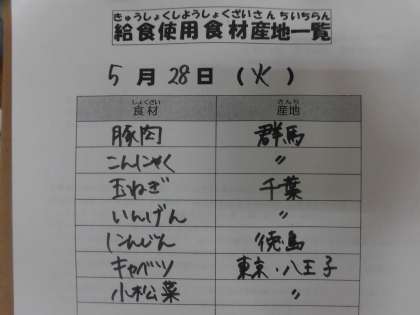 きゅうしょくしようしょくざいさんちいちらん
給食使用食材産地一覧
5月28日(火)
しょくざい さんち
食材 産地
豚肉 群馬
こんにゃく 〃
玉ねぎ 千葉
いんげん 〃
にんじん 徳島
キャベツ 東京・八王子
小松菜 〃